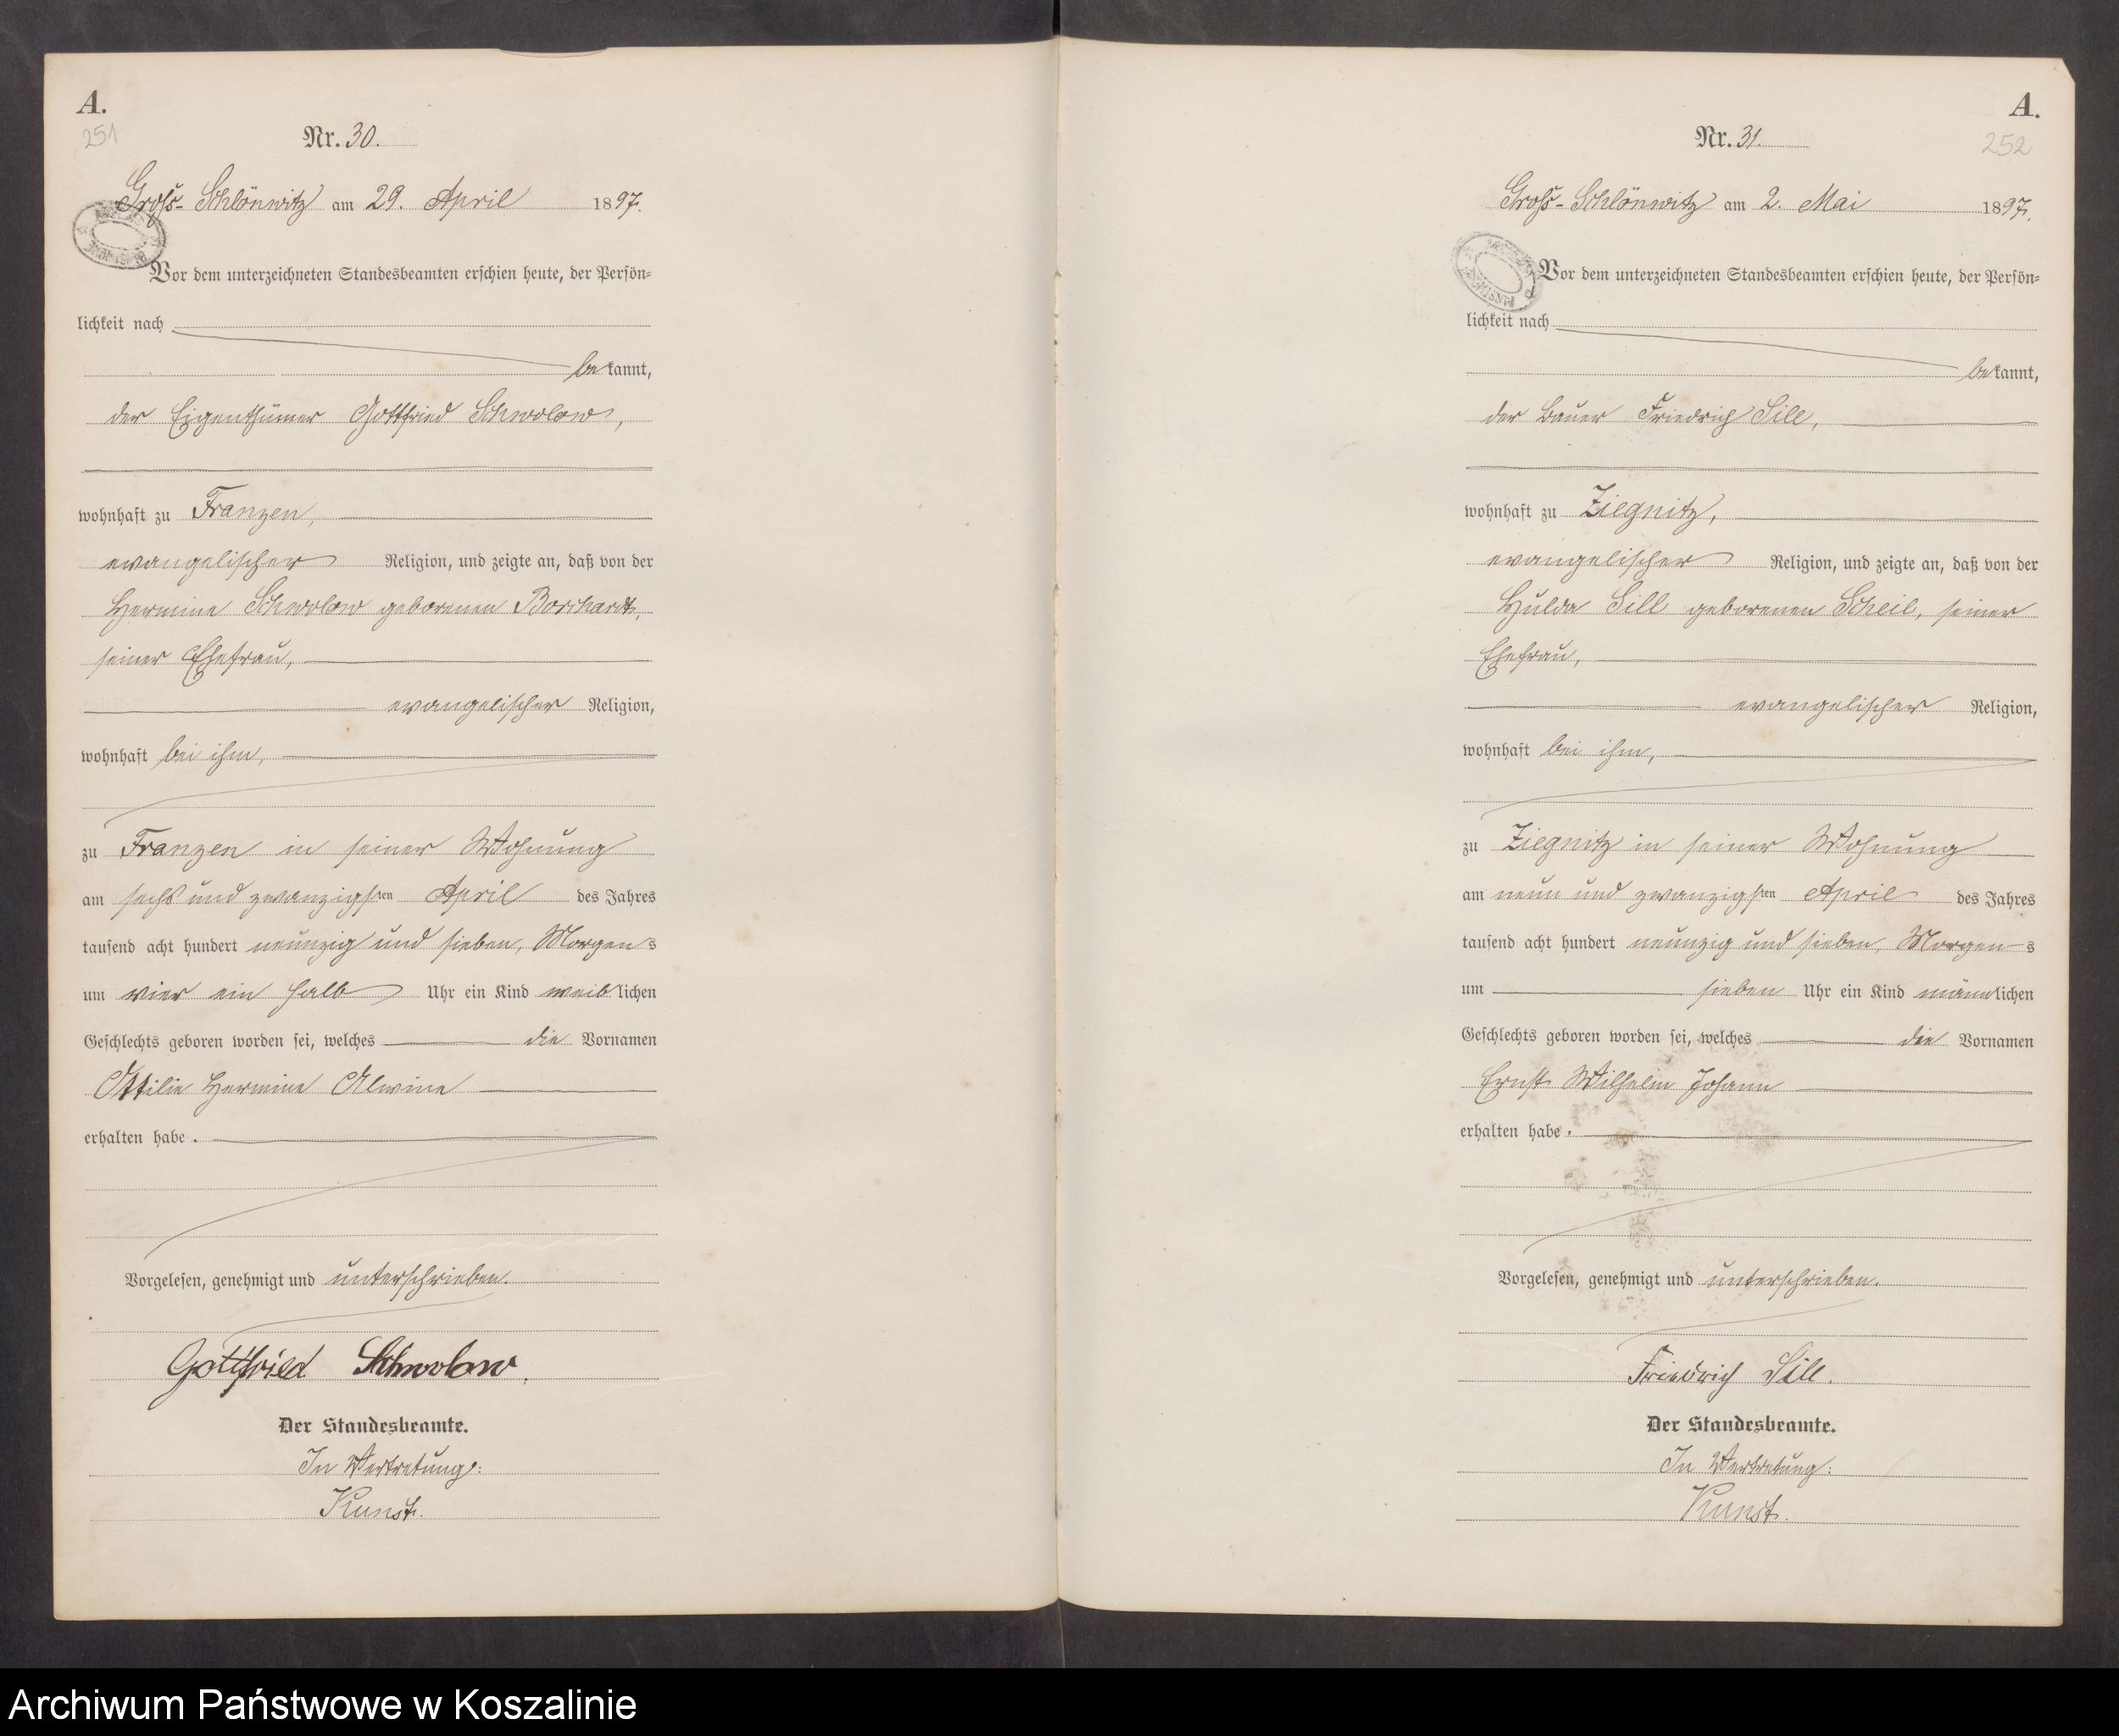 A.
251
Nr. 30.
Groß-Schlönwitz am 29. April 1897.
Vor dem unterzeichneten Standesbeamten erschien heute, der Persön-
lichkeit nach
bekannt,
der Eigenthümer Gottfried Schwolow,
wohnhaft zu Franzen,
evangelischer Religion, und zeigte an, daß von der
Hermine Schwolow geborenen Borchardt,
seiner Ehefrau,
evangelischer Religion,
wohnhaft bei ihm,
zu Franzen in seiner Wohnung
am sechs und zwanzigsten April des Jahres
tausend acht hundert neunzig und sieben, Morgens
um vier ein halb Uhr ein Kind weiblichen
Geschlechts geboren worden sei, welches die Vornamen
Ottilie Hermine Alwine
erhalten habe.
Vorgelesen, genehmigt und unterschrieben.
Gottfried Schwolow.
Der Standesbeamte.
In Vertretung:
Kunst.
A.
252
Nr. 31.
Groß-Schlönwitz am 2. Mai 1897.
Vor dem unterzeichneten Standesbeamten erschien heute, der Persön-
lichkeit nach
bekannt,
der Bauer Friedrich Sill,
wohnhaft zu Ziegnitz,
evangelischer Religion, und zeigte an, daß von der
Hulda Sill geborenen Scheil, seiner
Ehefrau,
evangelischer Religion,
wohnhaft bei ihm,
zu Ziegnitz in seiner Wohnung
am neun und zwanzigsten April des Jahres
tausend acht hundert neunzig und sieben, Morgens
um sieben Uhr ein Kind männlichen
Geschlechts geboren worden sei, welches die Vornamen
Ernst Wilhelm Johann
erhalten habe.
Vorgelesen, genehmigt und unterschrieben.
Friedrich Sill.
Der Standesbeamte.
In Vertretung:
Kunst.
Archiwum Państwowe w Koszalinie